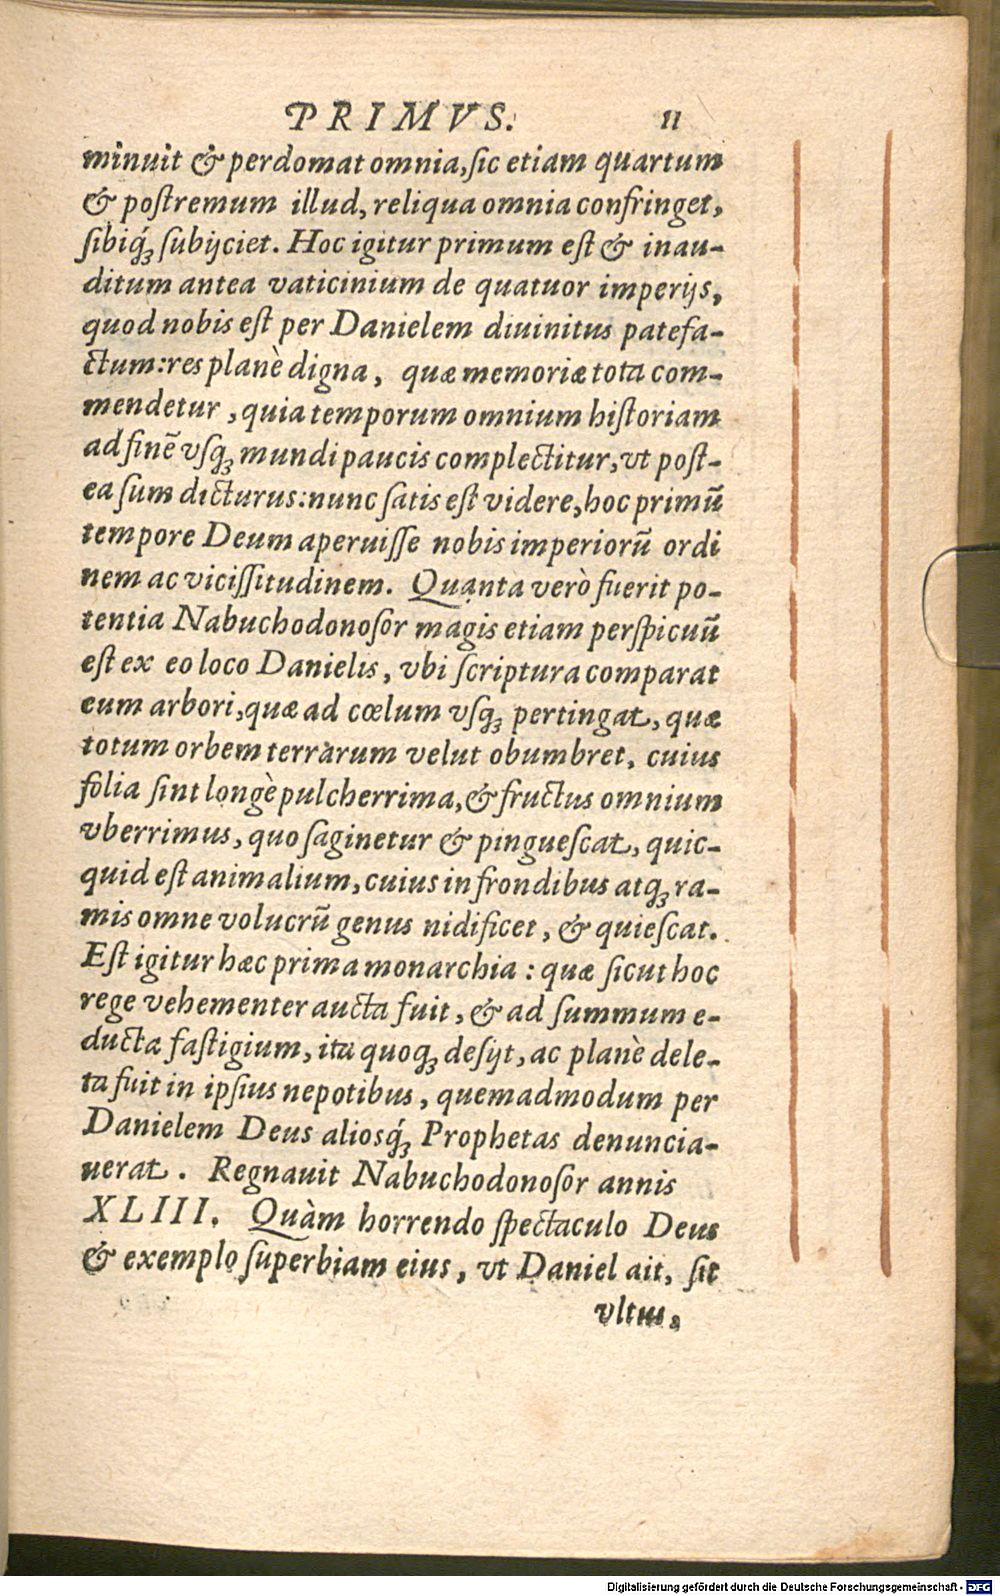 PRIMVS. 11
minuit & perdomat omnia, ſic etiam quartum
& poſtremum illud, reliqua omnia confringet,
ſibiq́; ſubijciet. Hoc igitur primum eſt & inau-
ditum antea vaticinium de quatuor imperijs,
quod nobis eſt per Danielem diuinitus patefa-
ctum: res planè digna, quæ memoriæ tota com-
mendetur, quia temporum omnium hiſtoriam
ad finē vſq; mundi paucis complectitur, vt poſt-
ea ſum dicturus: nunc ſatis eſt videre, hoc primū
tempore Deum aperuiſſe nobis imperiorū ordi
nem ac viciſſitudinem. Quanta verò fuerit po-
tentia Nabuchodonoſor magis etiam perſpicuū
eſt ex eo loco Danielis, vbi ſcriptura comparat
eum arbori, quæ ad cœlum vſq; pertingat, quæ
totum orbem terrarum velut obumbret, cuius
folia ſint longè pulcherrima, & fructus omnium
vberrimus, quo ſaginetur & pingueſcat, quic-
quid eſt animalium, cuius in frondibus atq; ra-
mis omne volucrū genus nidificet, & quieſcat.
Eſt igitur hæc prima monarchia: quæ ſicut hoc
rege vehementer aucta fuit, & ad ſummum e-
ducta faſtigium, ita quoq; deſijt, ac planè dele-
ta fuit in ipſius nepotibus, quemadmodum per
Danielem Deus alioſq́; Prophetas denuncia-
uerat. Regnauit Nabuchodonoſor annis
XLIII. Quàm horrendo ſpectaculo Deus
& exemplo ſuperbiam eius, vt Daniel ait, ſit
vltus,
Digitalisierung gefördert durch die Deutsche Forschungsgemeinschaft - DFG